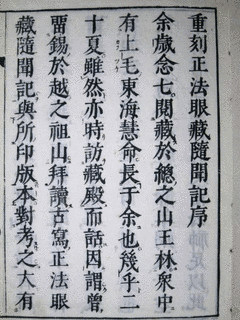 重刻正法眼藏隨聞記序
余歲念七閱藏於總之山王林衆中
有上毛東海慧命長于余也幾乎二
十夏雖然亦時訪藏殿而話因謂曾
畱錫於越之祖山拜讀古寫正法眼
藏隨聞記與所印版本對考之大有